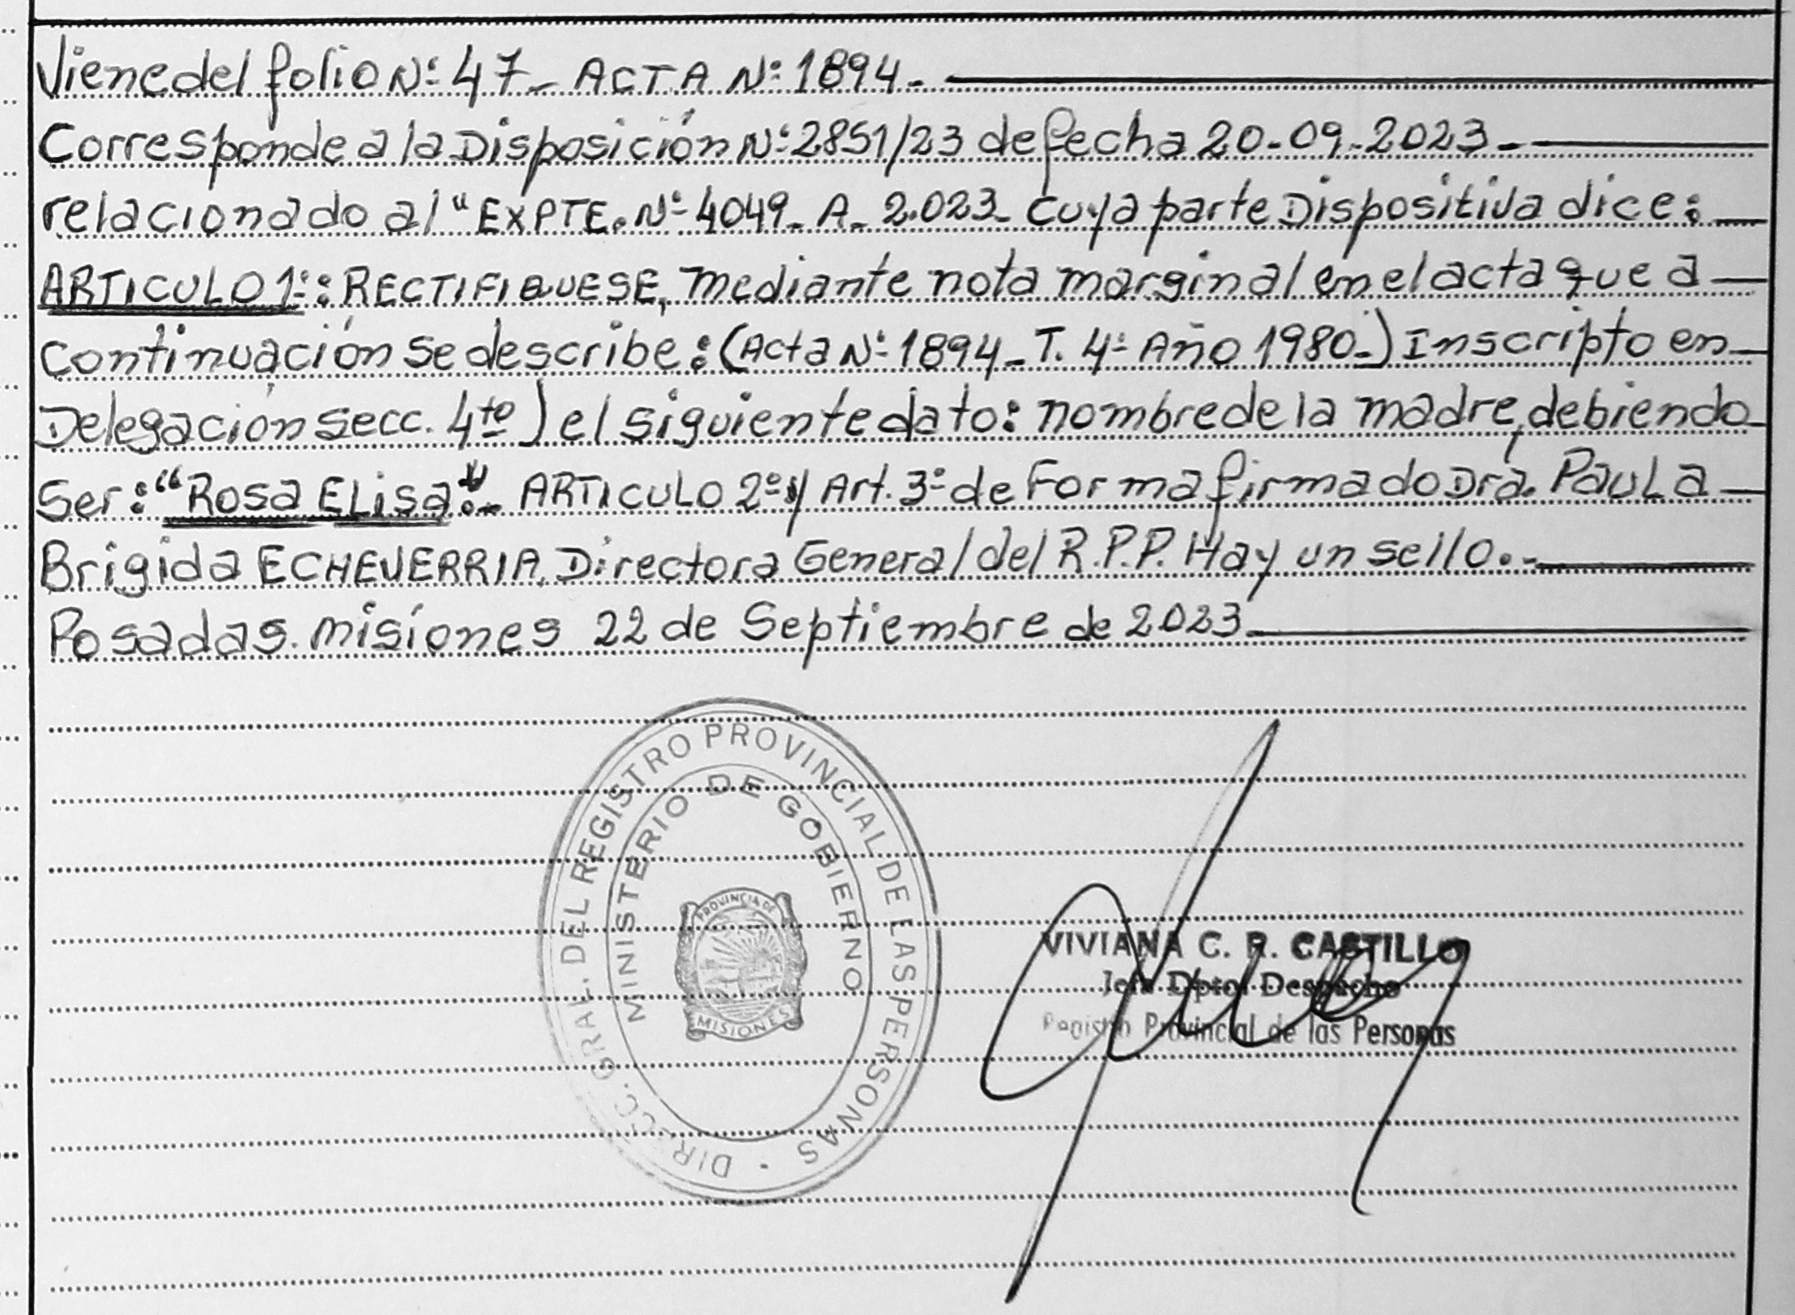 Viene del folio Nº 47_ ACTA Nº 1894_
Corresponde a la Disposición Nº 2851/23 de fecha 20-09-2023_
relacionado al "EXPTE. Nº 4049_ A_ 2.023_ cuya parte Dispositiva dice:
ARTICULO 1º: RECTIFIQUESE, mediante nota marginal en el acta que a
continuación se describe: (Acta Nº 1894_ T. 4º Año 1980_) Inscripto en
Delegación secc. 4to) el siguiente dato: nombre de la madre, debiendo
Ser: "Rosa ELisa"._ ARTICULO 2º y Art. 3º de Forma firmado Dra. PAULA
Brigida ECHEVERRIA. Directora General del R.P.P. Hay un sello._
Posadas. misiones 22 de Septiembre de 2023_
DIRECC. GRAL. DEL REGISTRO PROVINCIAL DE LAS PERSONAS
MINISTERIO DE GOBIERNO
PROVINCIA DE
MISIONES
VIVIANA C. R. CASTILLO
Jefa Dpto. Despacho
Registro Provincial de las Personas